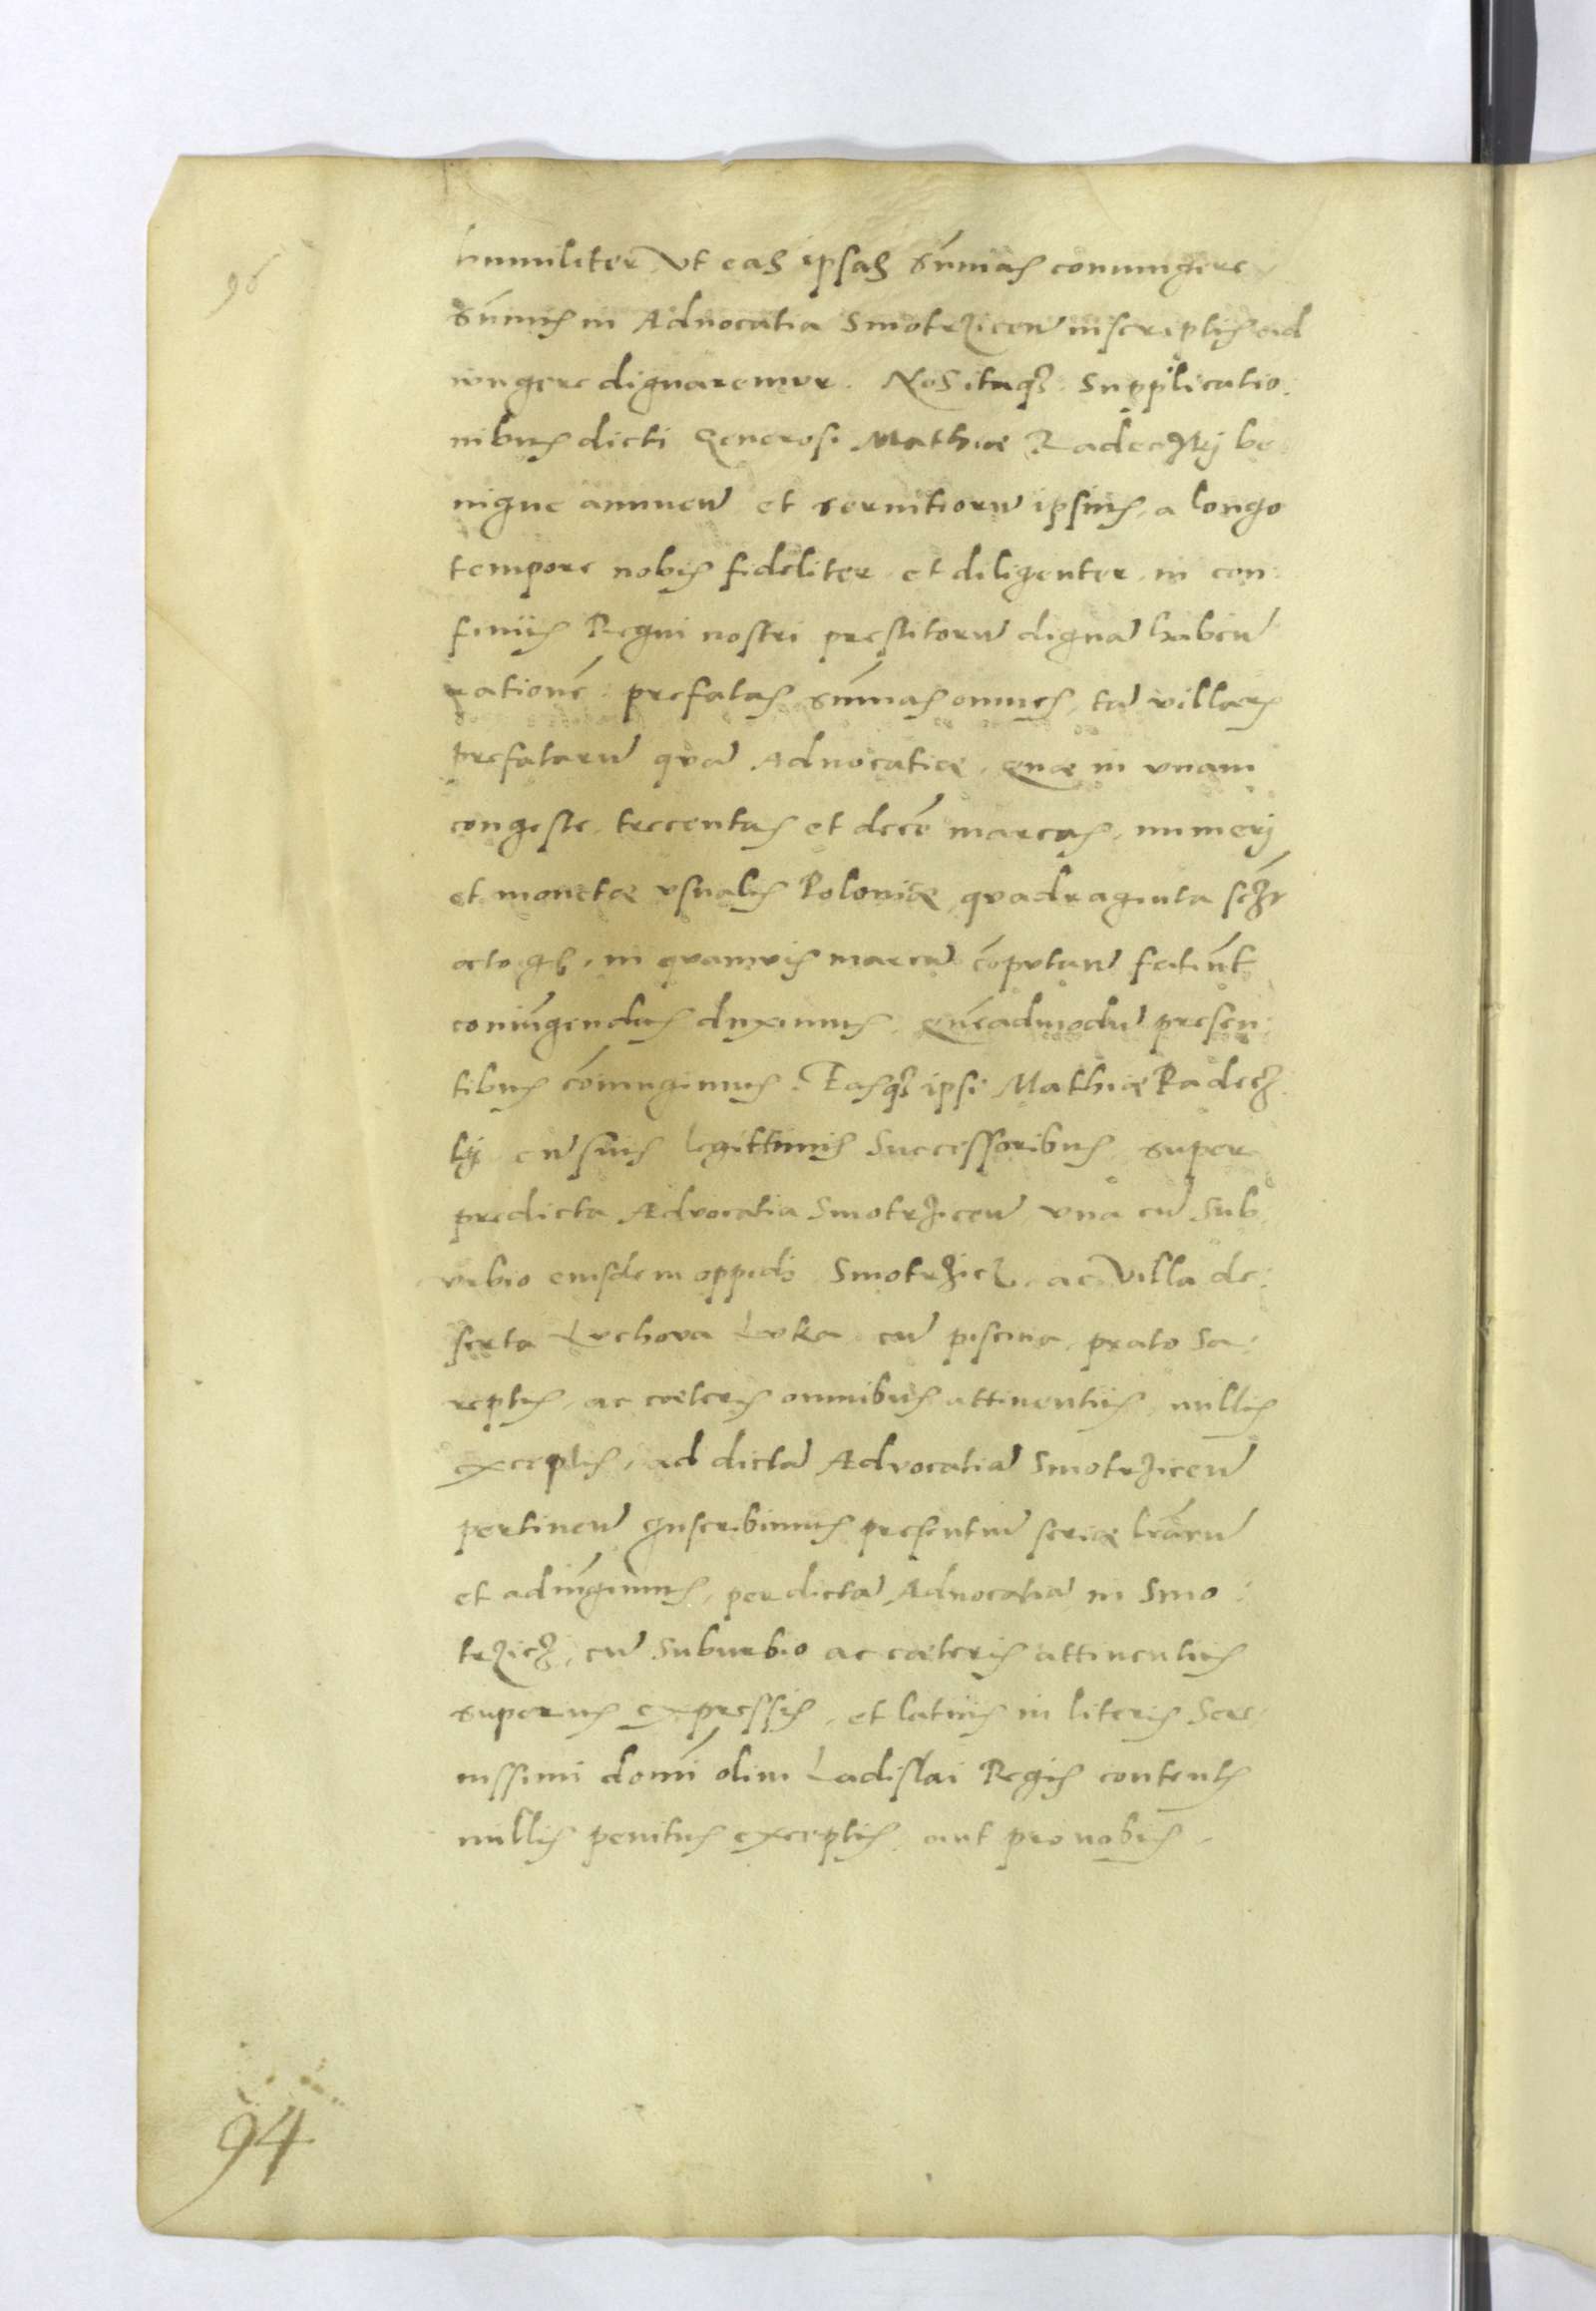 96
humiliter Vt eas ipsas Sūmas coniungere
Sūmis in Advocatia Smotrzicen̄ inscriptis ad
iungere dignaremur. Nos itaq3 Supplicatio:
nibus dicti Generosi Mathiæ Radeczkij be
nigne annuen̄ et servitioru̅ ipsius, a longo
tempore nobis fideliter et diligenter in con:
finiis Regni nostri prestitoru̅ digna̅ haben̄
ratione̅: prefatas Sūmas omnes, ta̅ villaru̅
prefataru̅ qua̅ Advocatiæ, Quæ in vnam
congestæ, trecentas et dece̅ marcas, numeri
et monetæ vsualis Polonicæ quadraginta
octo gs, in quamvis marca̅ co̅putan̄ fatiu̅t
coniu̅gendas duximus, Que̅admodu̅ presen:
tibus co̅iungimus. Easq3 ipsi Mathiæ Radecz
ky cu̅ suis legittimis Successoribus super
predicta Advocatia Smotrzicen̄ vna cu̅ Sub
vrbio eiusdem oppidi Smotrzicz ac Villa de:
serta Luchova Luka cu̅ piscina, prato Sa:
reptis, ac cæteris omnibus attinentiis, nullis
exceptis, ad dicta̅ Advocatia̅ Smotrzicen̄
pertinen̄ Inscribimus presentiu̅ seriæ lr̄aru̅
et adiu̅gimus, per dicta̅ Advocatia̅ in Smo:
trzicz, cu̅ Suburbio ac cæteris attinentiis
superius expressis, et latius in literis Sere
nissimi domi̅ olim Ladislai Regis contentis
nullis penitus exceptis, aut pro nobis
94